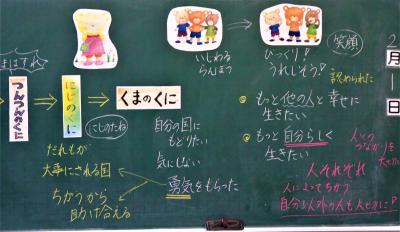 つんつんのくに
にじのくに
くまのくに
にじのたね
だれもが
大事にされる国
ちがうから
助け合える
自分の国に
もどりたい
気にしない
勇気をもらった
いじわる
らんぼう
びっくり!
うれしそう!
笑顔
認められた
もっと他の人と幸せに
生きたい
もっと自分らしく
生きたい
人との
つながりを
大せつに
人それぞれ
人によってちがう
自分以外の人も大せつに
2
月
一
日